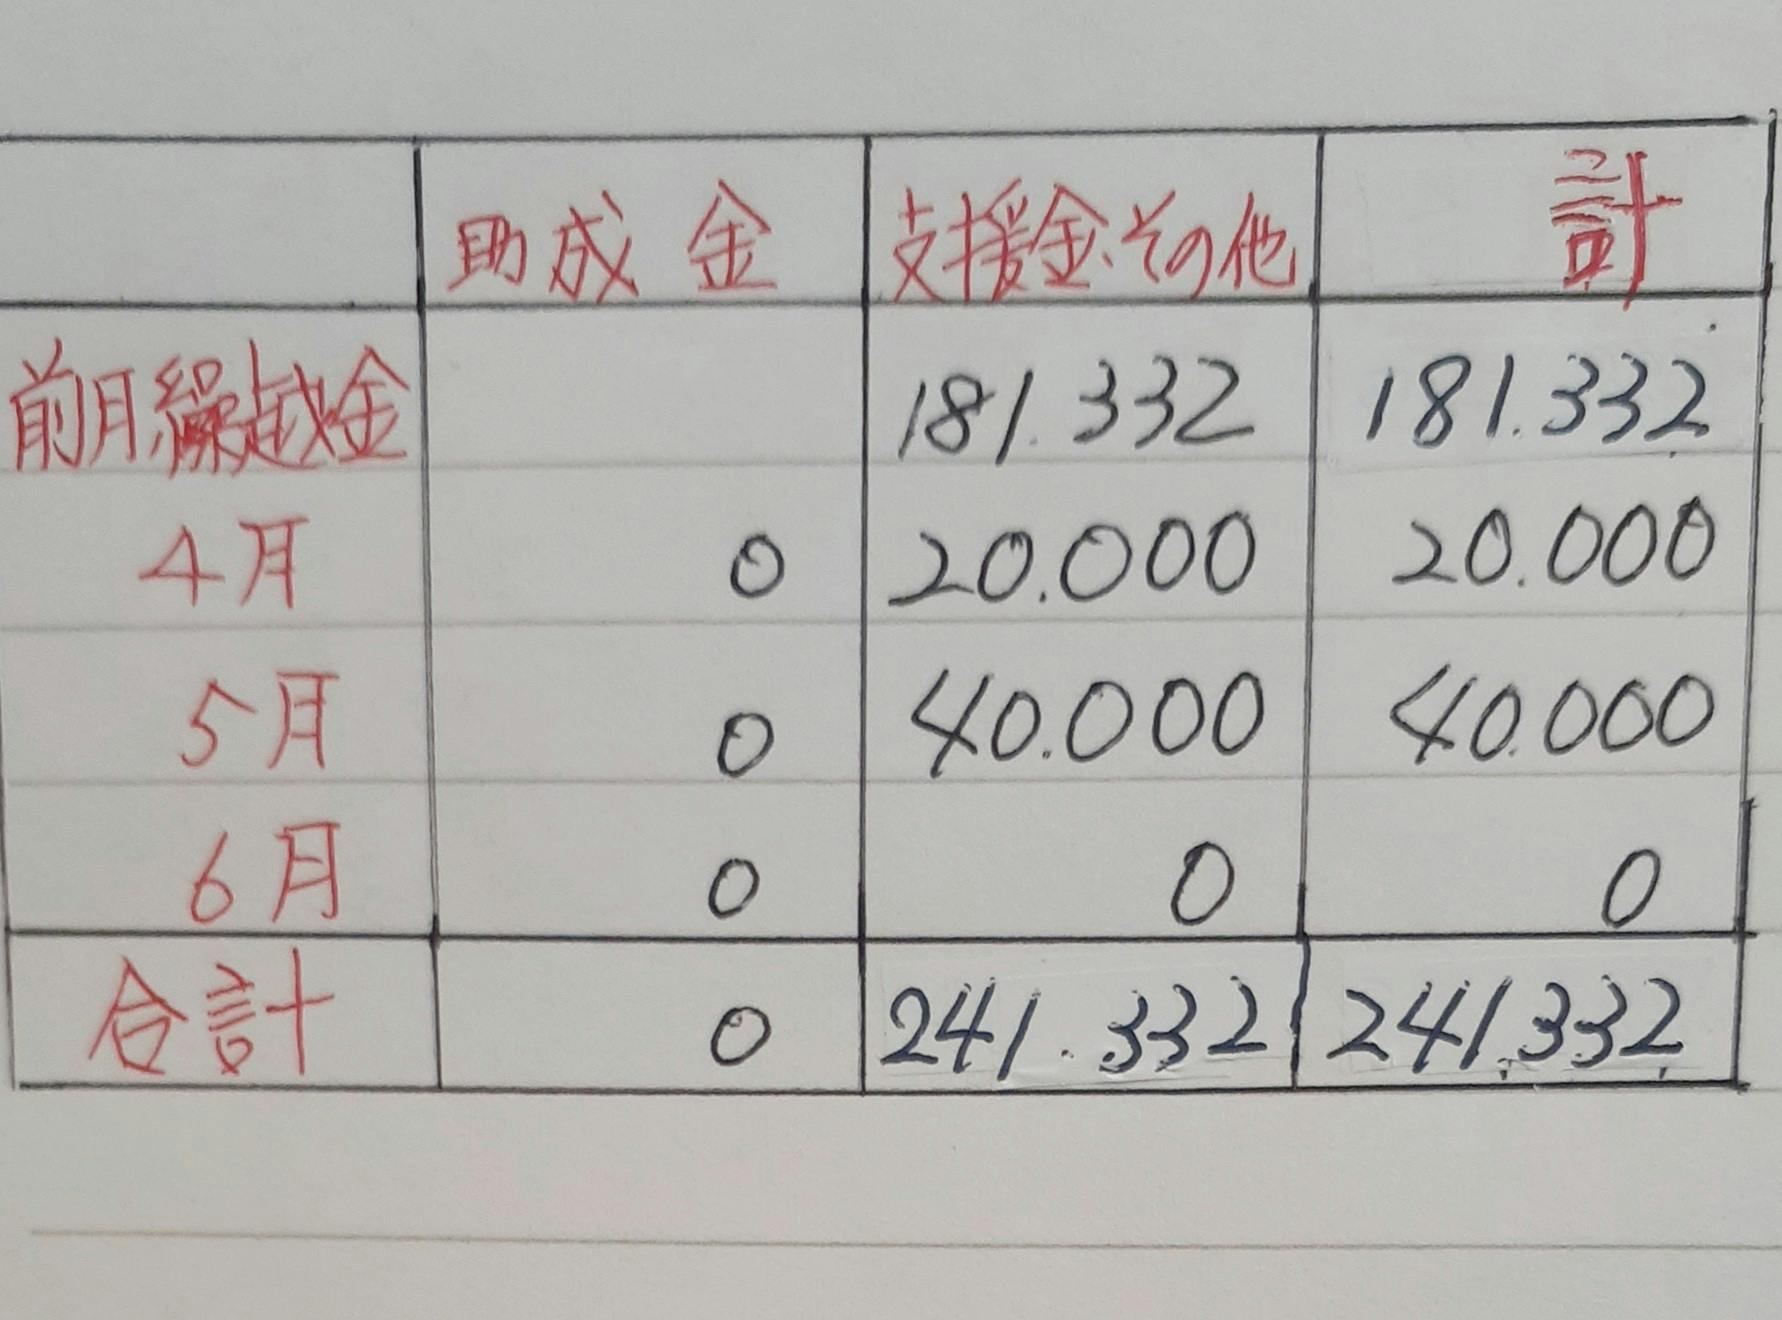 助成金 支援金.その他 計
前月繰越金 181.332 181.332
4月 0 20.000 20.000
5月 0 40.000 40.000
6月 0 0 0
合計 0 241.332 241.332